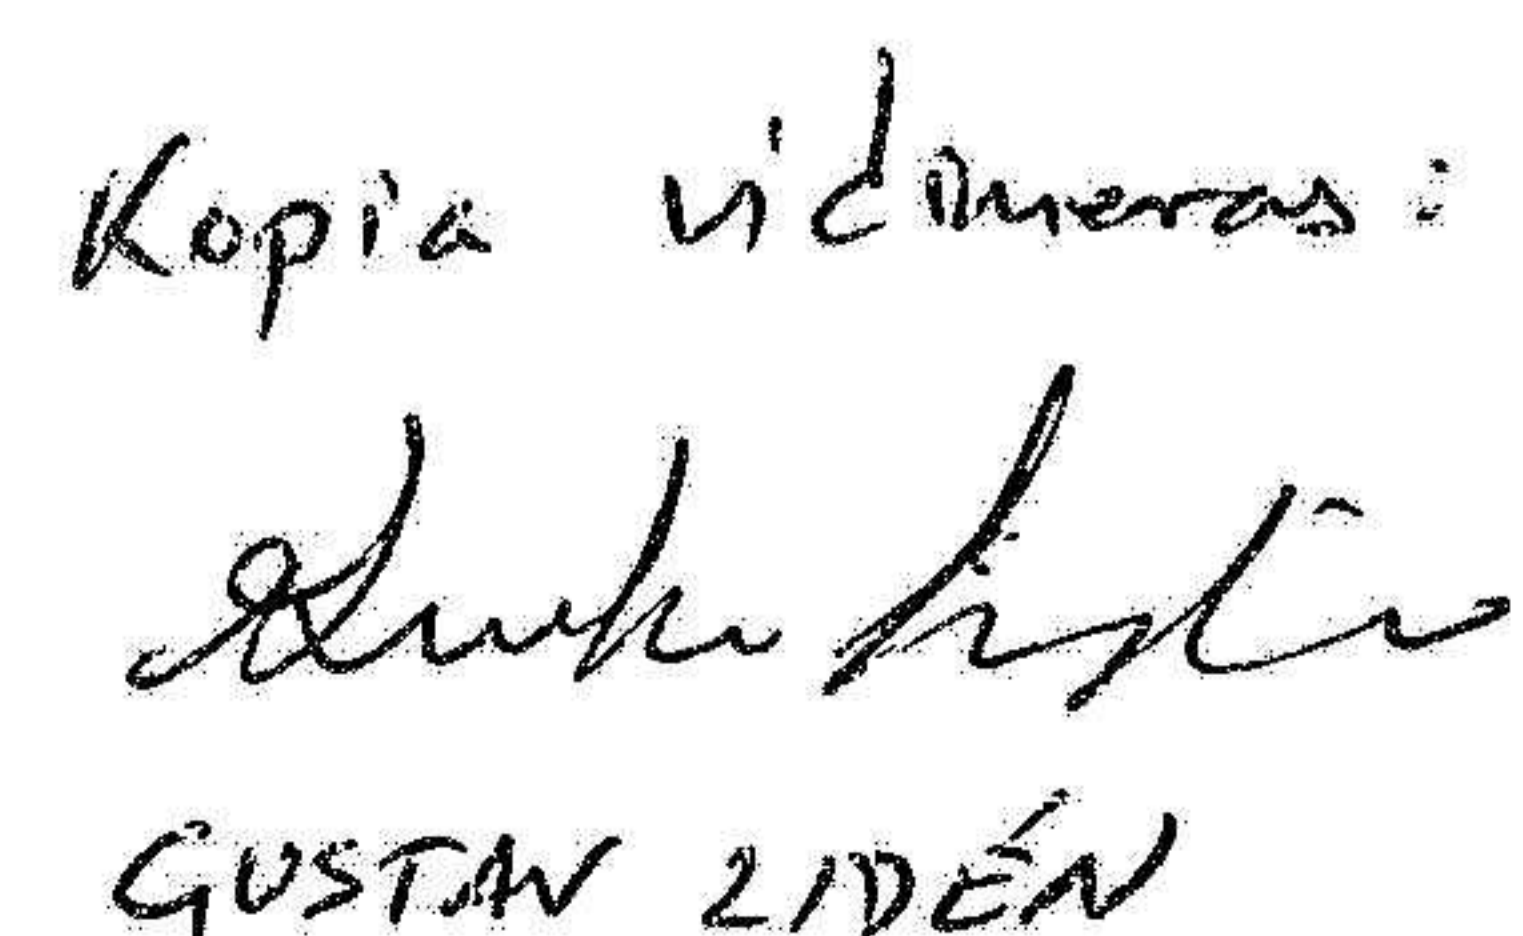 Kopia vidimeras:
GUSTAV LIDÉN